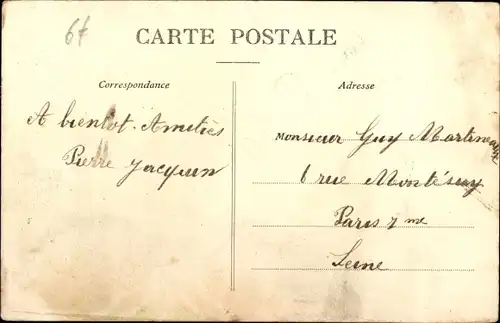 6f
CARTE POSTALE
Correspondance
A bientot. Amitiés
Pierre Jacquin
Adresse
Monsieur Guy Martineau
6 rue Montésuy
Paris 7 me
Seine